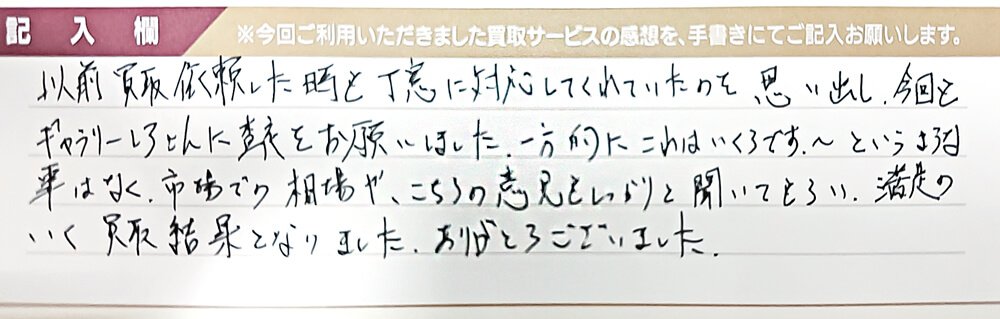 記入欄
※今回ご利用いただきました買取サービスの感想を、手書きにてご記入お願いします。
以前買取依頼した時も丁寧に対応してくれていたのを思い出し、今回も
ギャラリーしろさんに査定をお願いしました。一方的にこれはいくらです。〜というような
事はなく、市場での相場や、こちらの意見もしっかりと聞いてもらい、満足の
いく買取結果となりました。ありがとうございました。